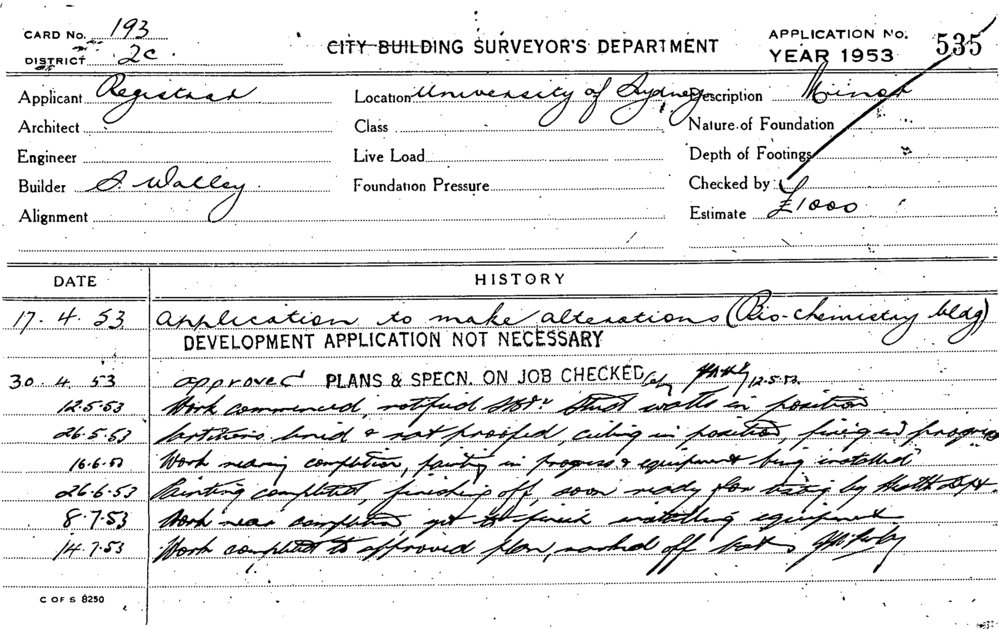 CARD No. 193
DISTRICT 2c
CITY BUILDING SURVEYOR'S DEPARTMENT
APPLICATION No. 535
YEAR 1953
Applicant Registrar Location University of Sydney Description Minor
Architect Class Nature of Foundation
Engineer Live Load Depth of Footings
Builder S. Walley Foundation Pressure Checked by
Alignment Estimate £1000
DATE HISTORY
17. 4. 53 Application to make alterations (Bio-chemistry bldg)
DEVELOPMENT APPLICATION NOT NECESSARY
30 4. 53 approved PLANS & SPECN. ON JOB CHECKED 12.5.53.
12.5.53 Work commenced, notified Stud walls in position
26.5.53 partitions lined & rat proofed, ceiling in position, fixing in progress
16.6.53 Work nearing completion, painting in progress & equipment being installed
26.6.53 Painting completed, finishing off, soon ready for testing by Health Dept.
8.7.53 Work near completion yet to finish installing equipment
14.7.53 Work completed to approved plan, marked off
C OF S 8250